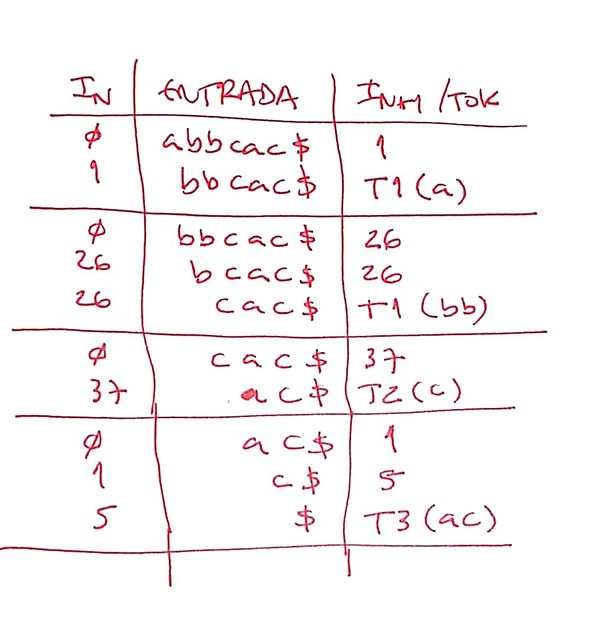 IN ENTRADA IN+1 /TOK
φ abbcac$ 1
1 bbcac$ T1(a)
φ bbcac$ 26
26 bcac$ 26
26 cac$ T1 (bb)
φ cac$ 37
37 ac$ T2(c)
φ ac$ 1
1 c$ 5
5 $ T3(ac)